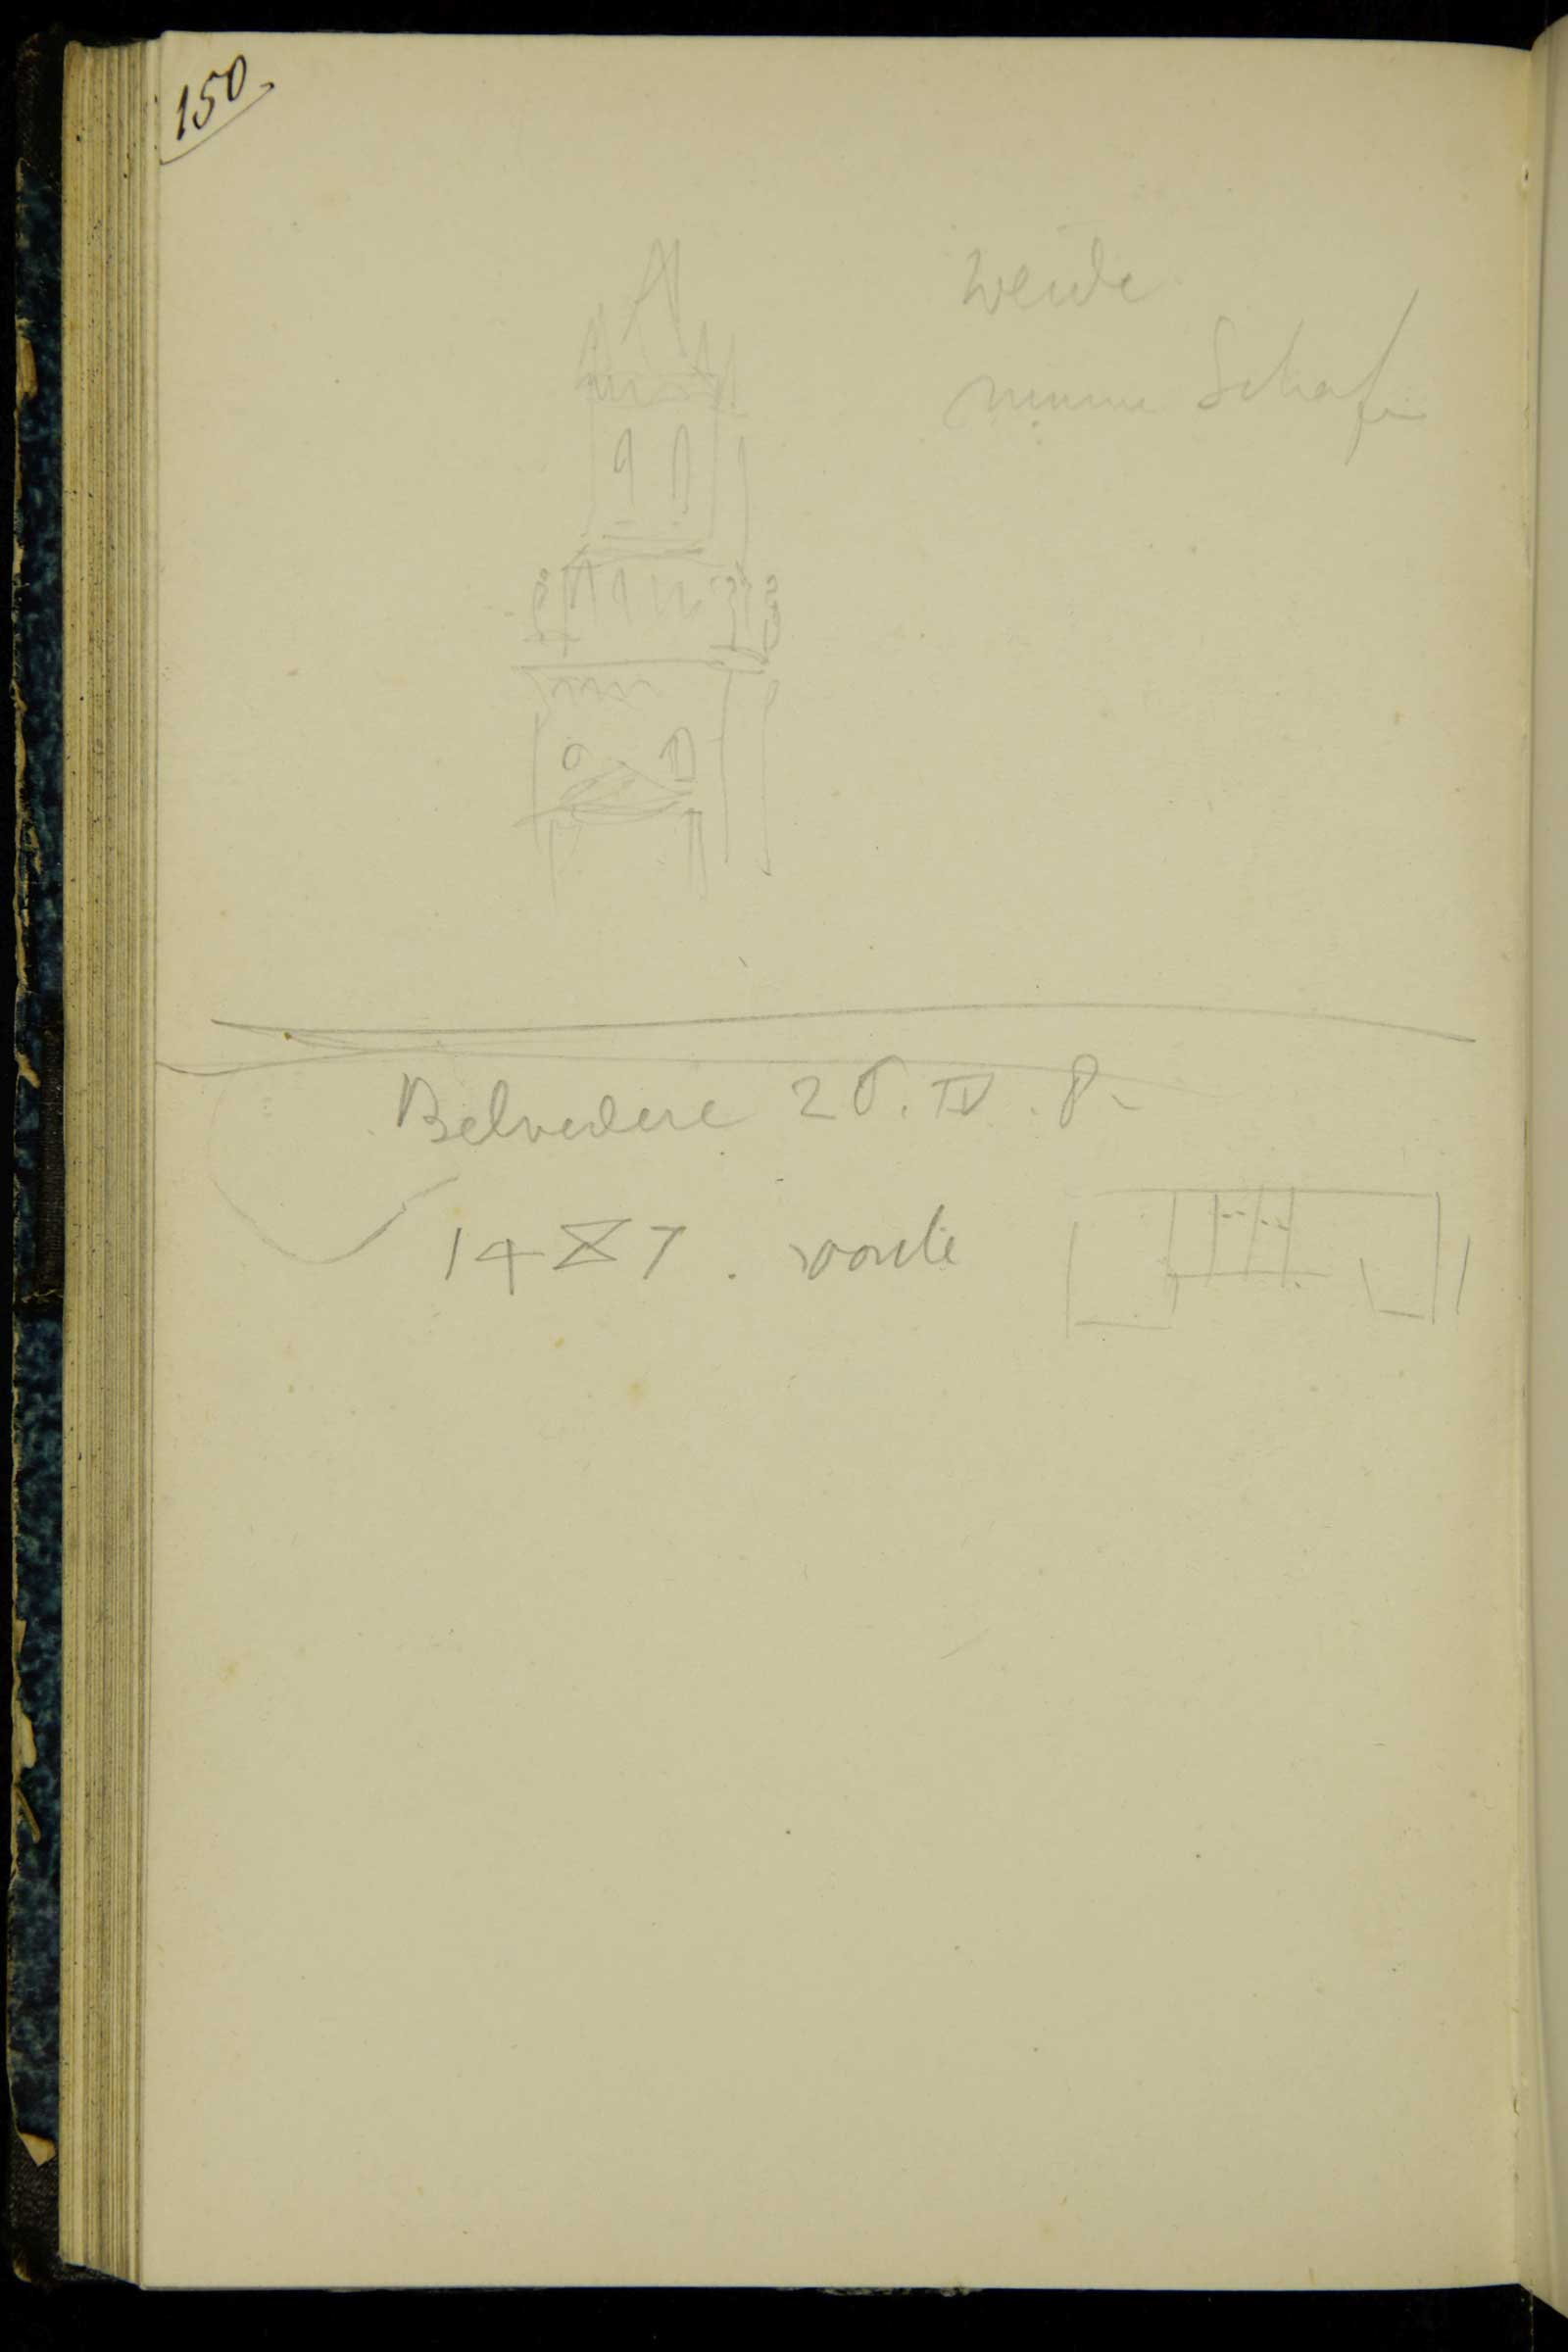 150.
weide
meine Schafe
Belvedere 28. IV. 8
1487.